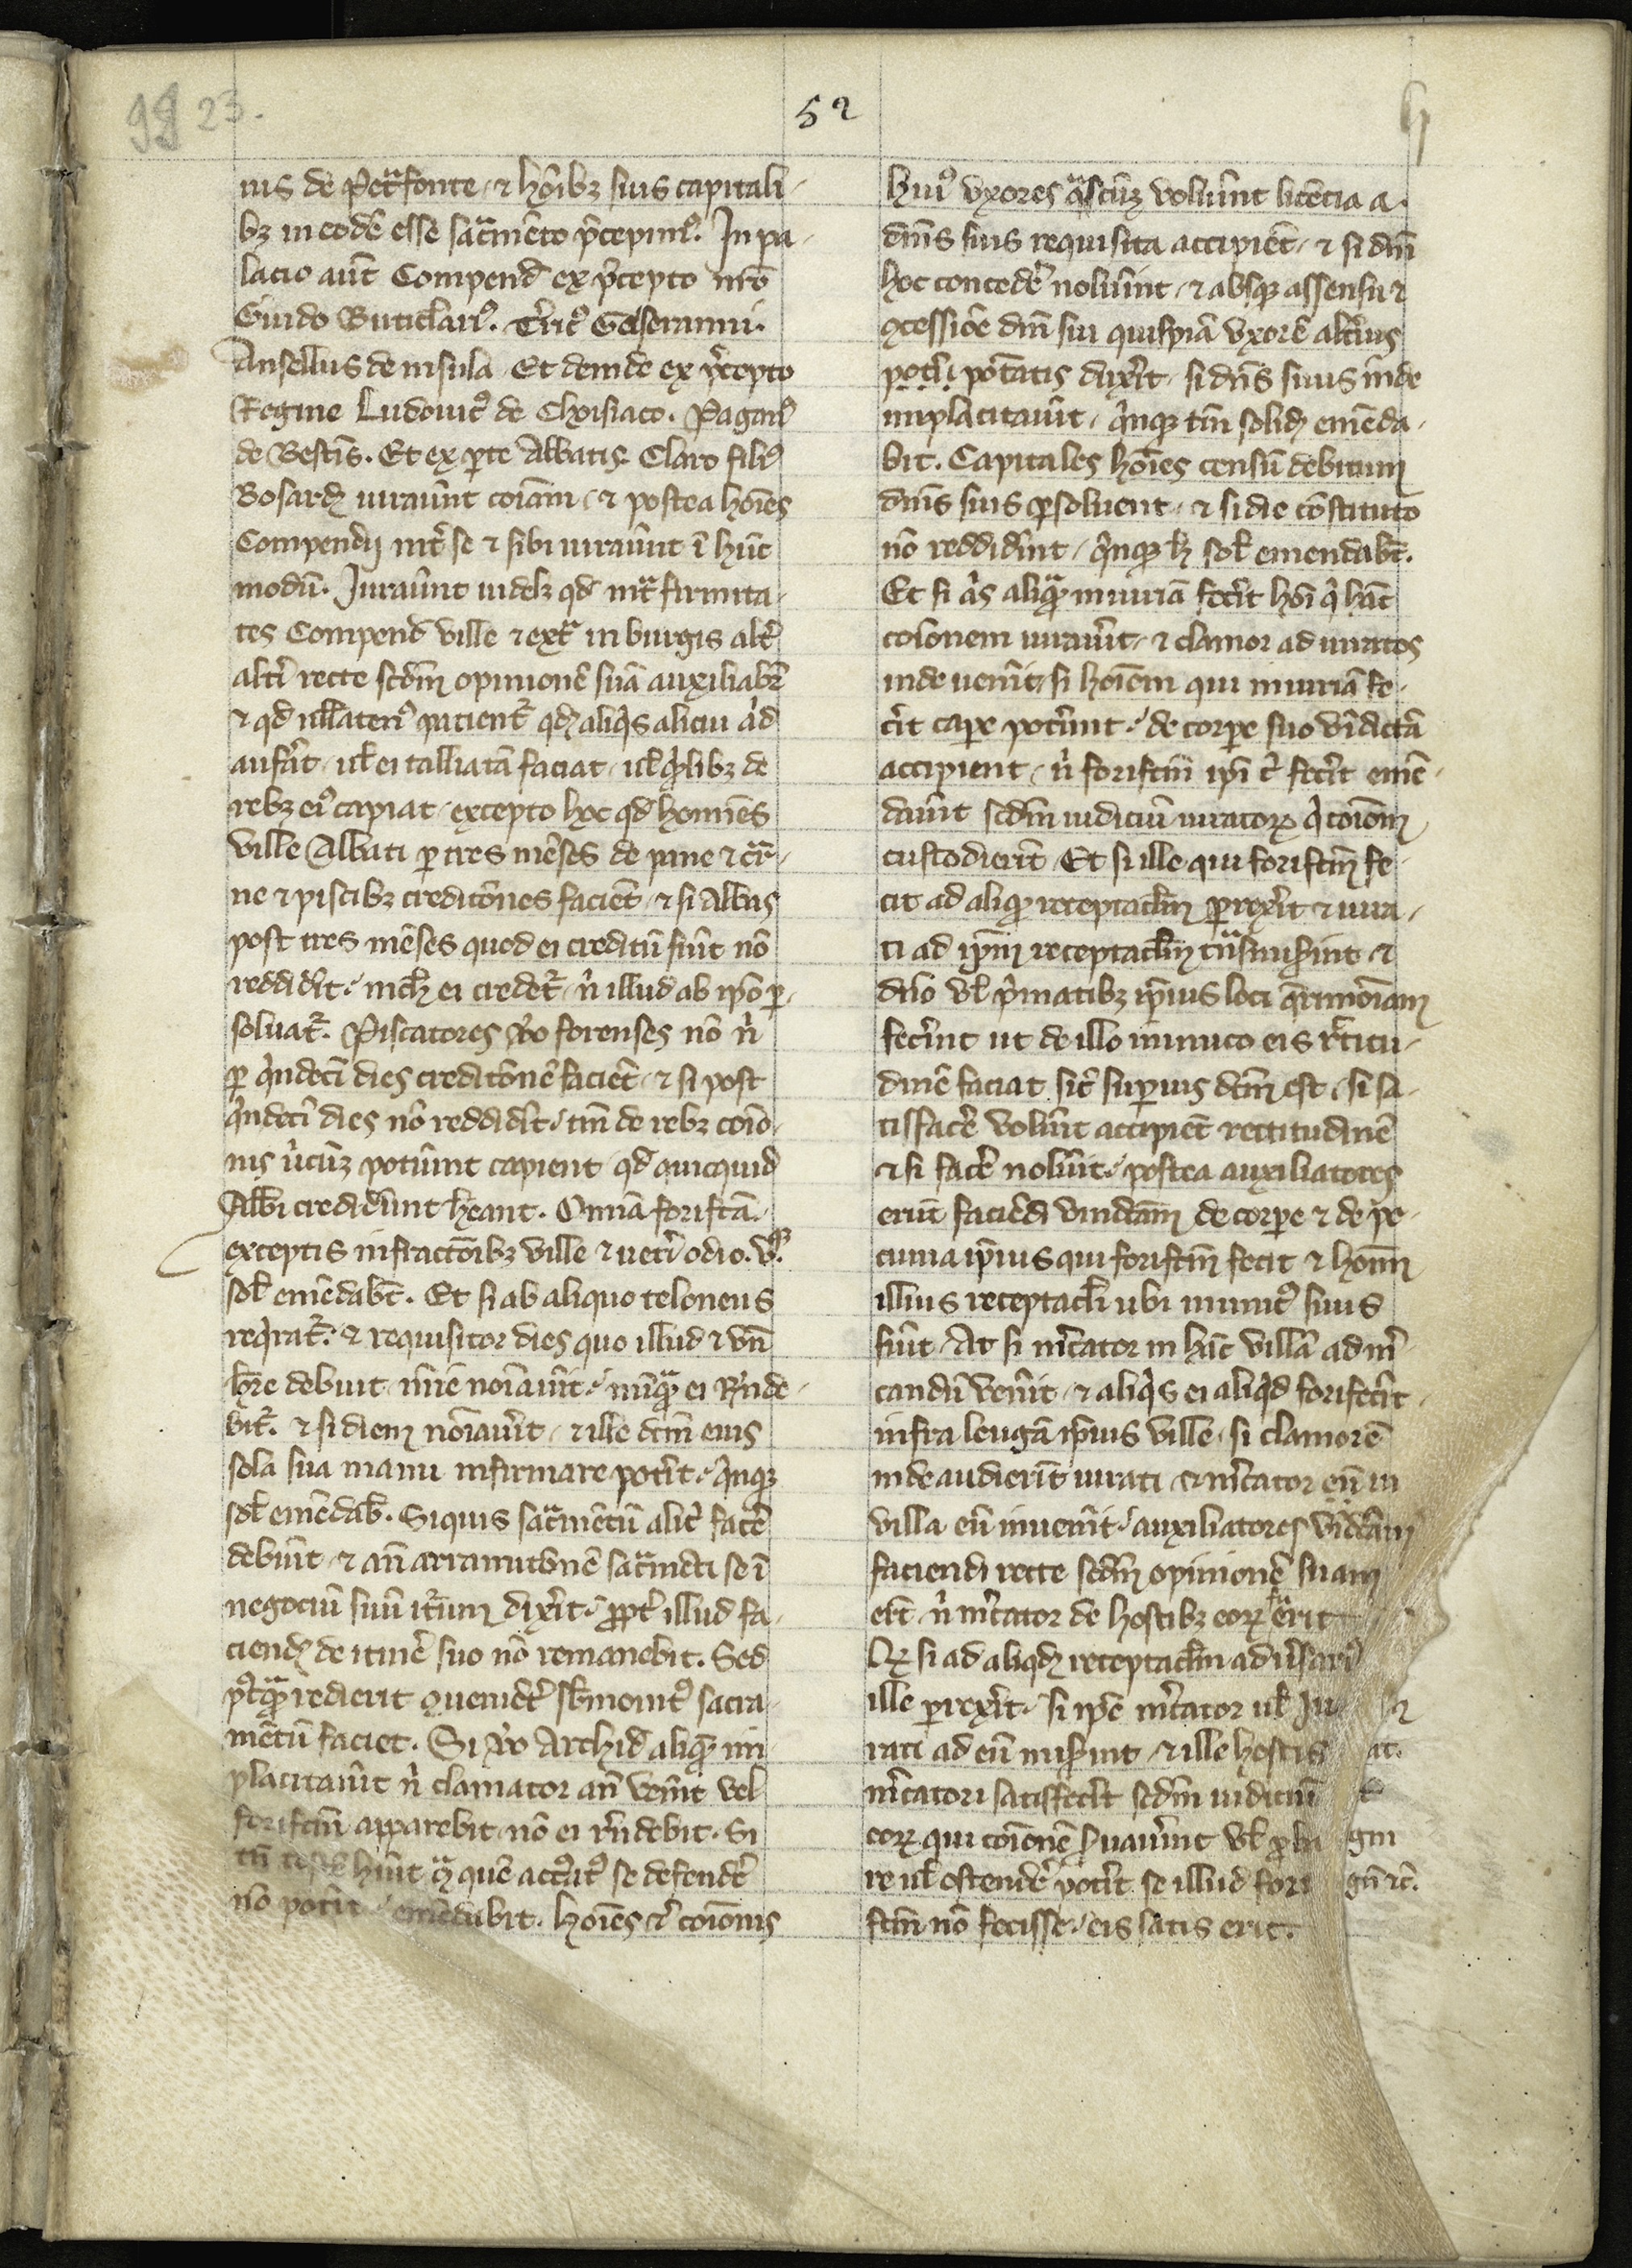 99 23.
52
h
uis de Petᵃfonte, ⁊ hoı̃ibꝫ suis capitali-
bꝫ in eodē esse sacᵃmēto p̃cepim⁹. In pa-
lacio aut̃ Compend̃ ex p̃cepto nr̃o
Guido Buticlari⁹. T̃ric⁹ Galeranni.
Ansellus de insula. Et deinde ex p̃cepto
Regine Ludouic⁹ de Choisiaco. Pagan⁹
de Bestis̃. Et ex ꝑte Abbatis. Claro fili⁹
Bosardi iurauer̃t coı̃am, ⁊ postea hoı̃es
Compendij int̃ se ⁊ sibi iurauer̃t ĩ hũc
modũ. Jurauer̃t uidelꝫ qd̃ intᵃ firmita-
tes Compend̃ ville ⁊ extᵃ in burgis alt̃
alt̃i recte scdm̃ opinionē suã auxiliabr̃
⁊ qd̃ ullaten⁹ pacient̃ qd̃ aliqⁱs alicui aⁱd
aufer̃t, ul̃ ei talliatã faciat, ul̃ qⁱdlibꝫ de
rebꝫ ei⁹ capiat, excepto hoc qd̃ homines
ville Abbati ꝑ tres mēses de pane ⁊ car̃-
ne ⁊ piscibꝫ creditōnes faciēt, ⁊ si Abbas
post tres mēses quod ei creditũ fuer̃t nō
reddider̃t, nichil ei credet̃ nⁱ illud ab ipo ꝑ-
soluat̃. Piscatores v̊o forenses nō nⁱ
ꝑ qⁱndeci dies creditōnē faciēt, ⁊ si post
qⁱndeci dies nō reddider̃t, tm̃ de rebꝫ coı̃o-
nis ubicũqꝫ poterũt capient, qd̃ quicquid
Abb̃i crediderũt heant. Omĩa forifc̃a.
exceptis infractōibꝫ ville ⁊ uet̃i odio. v.qꝫ
sol̃ emēdabt̃. Et si ab aliquo teloneus
reqⁱrat̃. ⁊ requisitor dies quo illud ⁊ vñ
hr̃e debuit, mı̃e noı̃auer̃t, nũqᵃꝫ ei Rñde-
bit̃. ⁊ si diem noı̃auer̃t, ⁊ ille dcm̃ eius
sola sua manu infirmare poter̃t, qⁱnqꝫ
sol̃ emēdab̃. Siquis sacᵃmētũ alic̃ⁱ facer̃
debuer̃t ⁊ an̄ arramitōnē sacᵃmēti se ĩ
negociũ suũ itur̃um dixer̃t, ꝓpt̃ illud fa-
ciend̃ de itiner̃ suo nō remanebit. Sed
p⁹tqᵃꝫ redierit ꝯuenider̃ sb̃monit⁹ sacra-
mētũ faciet. Si v̊o Archid̃ aliquē im-
placitauer̃t nⁱ clamator an̄ vener̃t vel
forifcm̃ apparebit, nō ei rñdebit. Si
tn̄ hũit ꝯtᵃ quē accusat⁹ se defender̃
nō poter̃t, emēdabit. Hoı̃es ei⁹ coı̃onis
hui⁹ vxores qᵃscũqꝫ voluer̃nt licẽcia a
dnı̃s suis requisita accipiēt, ⁊ si dnĩ
hoc conceder̃ noluer̃nt, ⁊ absqꝫ assensu ⁊
ꝯcessiōe dnı̃ sui quispiã vxorē alterius
poter̃i potatis duxer̃t, si dns̃ suus inde
implacitauer̃t, qⁱnqꝫ tm̃ solid̃ emēda-
bit. Capitales hoı̃es censũ debitum
dnı̃s suis ꝑsoluent, ⁊ si die cōstituto
nō reddider̃nt, qⁱnqꝫ h̃ sol̃ emendabt̃.
Et si qⁱs aliqᵃꝫ iniuriã fecer̃t hoı̃i qⁱ hāc
coı̃onem iurauer̃t, ⁊ clamor ad iuratos
inde uener̃t, si hoı̃em qui iniuriã fe-
cer̃t capꝫ poter̃nt, de corpe suo vĩdictã
accipient, nⁱ forifcm̃ ipĩ cⁱ fecer̃t emē-
dauer̃t scdm̃ iudiciũ iuratorꝫ qⁱ coı̃om
custodierit̃. Et si ille qui forifcm̃ fe-
cit ad aliqꝫ receptacl̃m ꝑrexer̃t ⁊ iura-
ti ad ipm̃ receptacl̃m tᵃnsmiser̃int ⁊
dn̄o ul̃ pⁱmatibꝫ ipius loci q̃rimoı̃am
fecer̃int ut de illo inimico eis rc̃titu-
dinē faciat sic̃ superius dcm̃ est, si sa-
tisfacer̃ voluer̃t accipiēt rectitudinē
⁊ si facer̃ noluer̃t, postea auxiliatores
erũt faciēdi vindcãm de corpe ⁊ de pe-
cunia ipius qui forifcm̃ fecit ⁊ hoı̃m
illius receptacli ubi inimic⁹ suus
fuer̃t. At si m̃cator in hāc villã ad m̃-
candũ vener̃t, ⁊ aliqⁱs ei aliqⁱd forifecer̃t
infra leugã ipius ville, si clamorē
inde audierit̃ iurati ⁊ m̃cator eũ in
villa eũ inuener̃t, auxiliatores vĩdcãm
faciendi recte scdm̃ opinionē suam
ert̃ nⁱ m̃cator de hostibꝫ eorꝫ fᵃerit
Qꝫ si ad aliqd̃ receptacl̃m aduersari⁹
ille ꝑrexer̃t, si ipe m̃cator ul̃ Ju-
rati ad eũ miser̃int ⁊ ille hostis
m̃catori satisfecer̃t scdm̃ iudiciũ
eorꝫ qui coı̃onē Juauer̃int ul̃ ꝓba-
re ul̃ ostender̃ poter̃t se illud fori-
fcm̃ nō fecisse, eis satis erit.